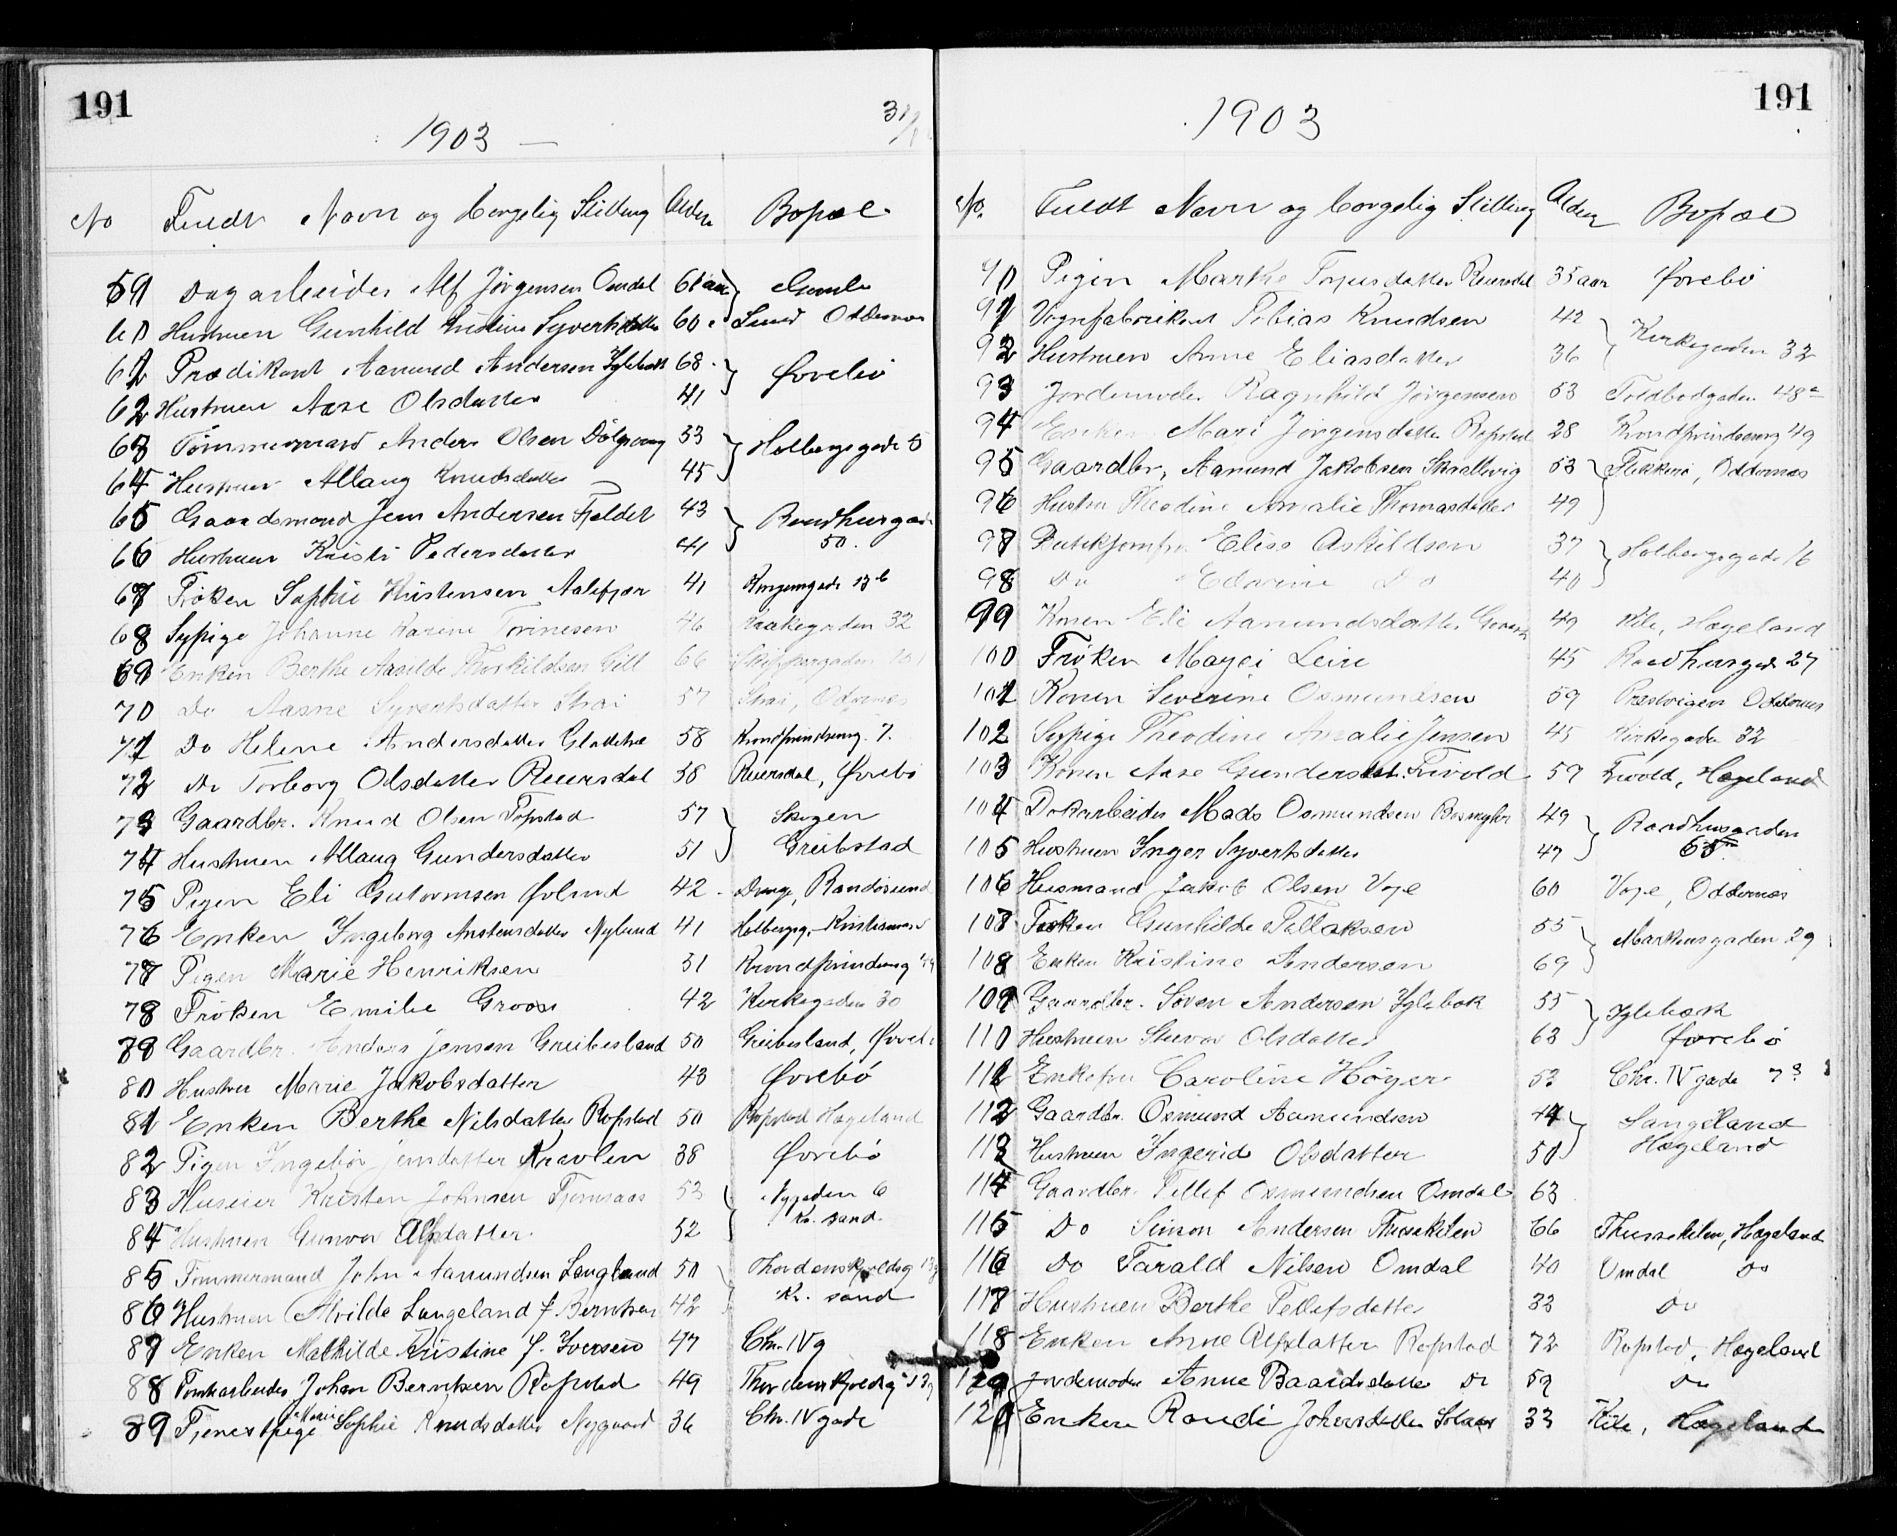 191
1903 —
31/1
No Fuldt Navn og borgelig Stilling Alder Bopæl
59 Dagarbeider Alf Jörgensen Omdal 61 aar Gamle
60 Hustruen Gunhild Syvertsdatter 60 Lund Oddernes
61 Prædikant Aanund Andersen Iglebæk 68
62 Hustruen Aase Olsdatter 41 Øvrebö
63 Tömmermand Anders Olsen 53 Holbergsgade 5
64 Hustruen Allaug Knudsdatter 45
65 Gaardsmand Jens Andersen Fjeldet 43 Raadhusgade
66 Hustruen Kristi Pedersdatter 41 50.
67 Fröken Sophie Kristensen 41 Kongensgade 13 b
68 Sypige Johanne Karine Torinesen 46 Kirkegaden 32
69 Enken Berthe Aasilde Thorkildsen Gill 66 Skippergaden
70 Do Aasne Syvertsdatter Strai 57 Strai, Oddernes
71 Do Helene Andersdatter 58 Krondprindseng. 7.
72 Do Torborg Olsdatter Reiersdal 58 Reiersdal, Øvrebö
73 Gaardbr. Knud Olsen Fopstad 57 Skogen
74 Hustruen Allaug Gundersdatter 51 Greibstad
75 Pigen Eli Gutormsen Øvlund 42 Drange, Randösund
76 Enken Ingeborg Anstensdatter Nylund 41 Holbergsg. Kristiansand
77 Pigen Marie Henriksen 51 Krondprindseng 49
78 Fröken Emilie Groos 42 Kirkegaden 30
79 Gaardbr. Anders Jensen Greibesland 50 Greibesland, Øvrebö
80 Hustru Marie Jakobsdatter 43 Øvrebö
81 Enken Berthe Nilsdatter Ropstad 50 Ropstad Hægeland
82 Pigen Ingebor Jensdatter Kravlen 38 Øvrebö
83 Huseier Kristen Johnsen Tjomsaas 53 Nygaden 6
84 Hustruen Gunvor Alfsdatter 52 Kr. sand
85 Tömmermand John Aanundsen Langeland 50 Thordenskjoldsg 13 g
86 Hustruen Alvilde Langeland f. Berntsen 42 Kr. sand
87 Enken Mathilde Kristine f. Iversen 47 Chr. IV g
88 Tomtearbeider Johan Berntsen Ropstad 49 Thordenskjoldsg 13 g
89 Tjenestpige Marie Sophie Knudsdatter Nygaard 36 Chr. IV gade
191
1903
No. Fuldt Navn og borgelig Stilling Alder Bopæl
90 Pigen Marthe Terjesdatter Reiersdal 35 aar Øvrebö
91 Vognfabrikant Tobias Knudsen 42 Kirkegaden 32
92 Hustruen Anne Eliasdatter 36
93 Jordemoder Ragnhild Jörgensen 53 Toldbodgaden 48 a
94 Enken Mari Jörgensdatter Ropstad 28 Krondprindseng 49
95 Gaardbr, Aanund Jakobsen Skrattvig 53 Flekkerö, Oddernes
96 Hustru Theodine Amalie Thomasdatter 49
97 Butikjomfru Elise Askildsen 37 Holbergsgade 16
98 Do Edvine Do 40
99 Konen Eli Aanundsdatter 49 Kile, Hægeland
100 Fröken Magei Leire 45 Raadhusgade 27
101 Konen Severine Osmundsen 59 Prestvigen Oddernes
102 Sypige Theodine Amalie Jensen 45 Kirkegade 32
103 Konen Aase Gundersdat. Frivold 59 Frivold, Hægeland
104 Dokarbeider Mads Osmundsen 49 Raadhusgaden
105 Hustruen Inger Syvertsdatter 47 65
106 Husmand Jakob Olsen Voje 60 Voje, Oddernes
107 Fröken Gunhilde Tellaksen 55 Markensgaden 29
108 Enken Kristine Andersen 69
109 Gaardbr. Sören Andersen Iglebæk 55 Iglebæk
110 Hustruen Olsdatter 63 Øvrebö
111 Enkefru Caroline Höyer 53 Chr. IV gade 73
112 Gaardbr. Osmund Aanundsen 44 Langeland
113 Hustruen Ingerid Olsdatter 50 Hægeland
114 Gaardbr. Tellef Osmundsen Omdal 63
115 Do Simon Andersen Thussekilen 66 Thussekilen, Hægeland
116 Do Tarald Nilsen Omdal 40 Omdal Do
117 Hustruen Berthe Tellefsdatter 33 Do
118 Enken Anne Alfsdatter Ropstad 72 Ropstad, Hægeland
119 Jordemoder Anne Baardsdatter Do 59 Do
120 Enken Randi Johnsdatter 33 Kile, Hægeland